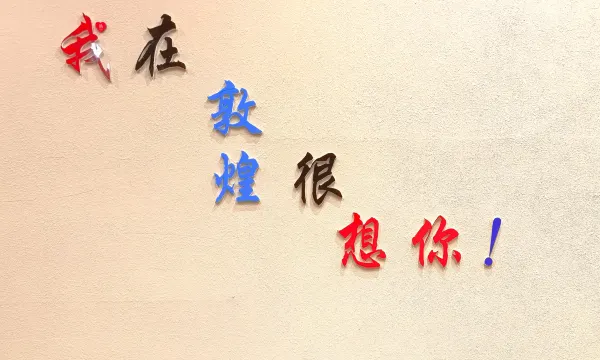 我在
敦
煌很
想你!